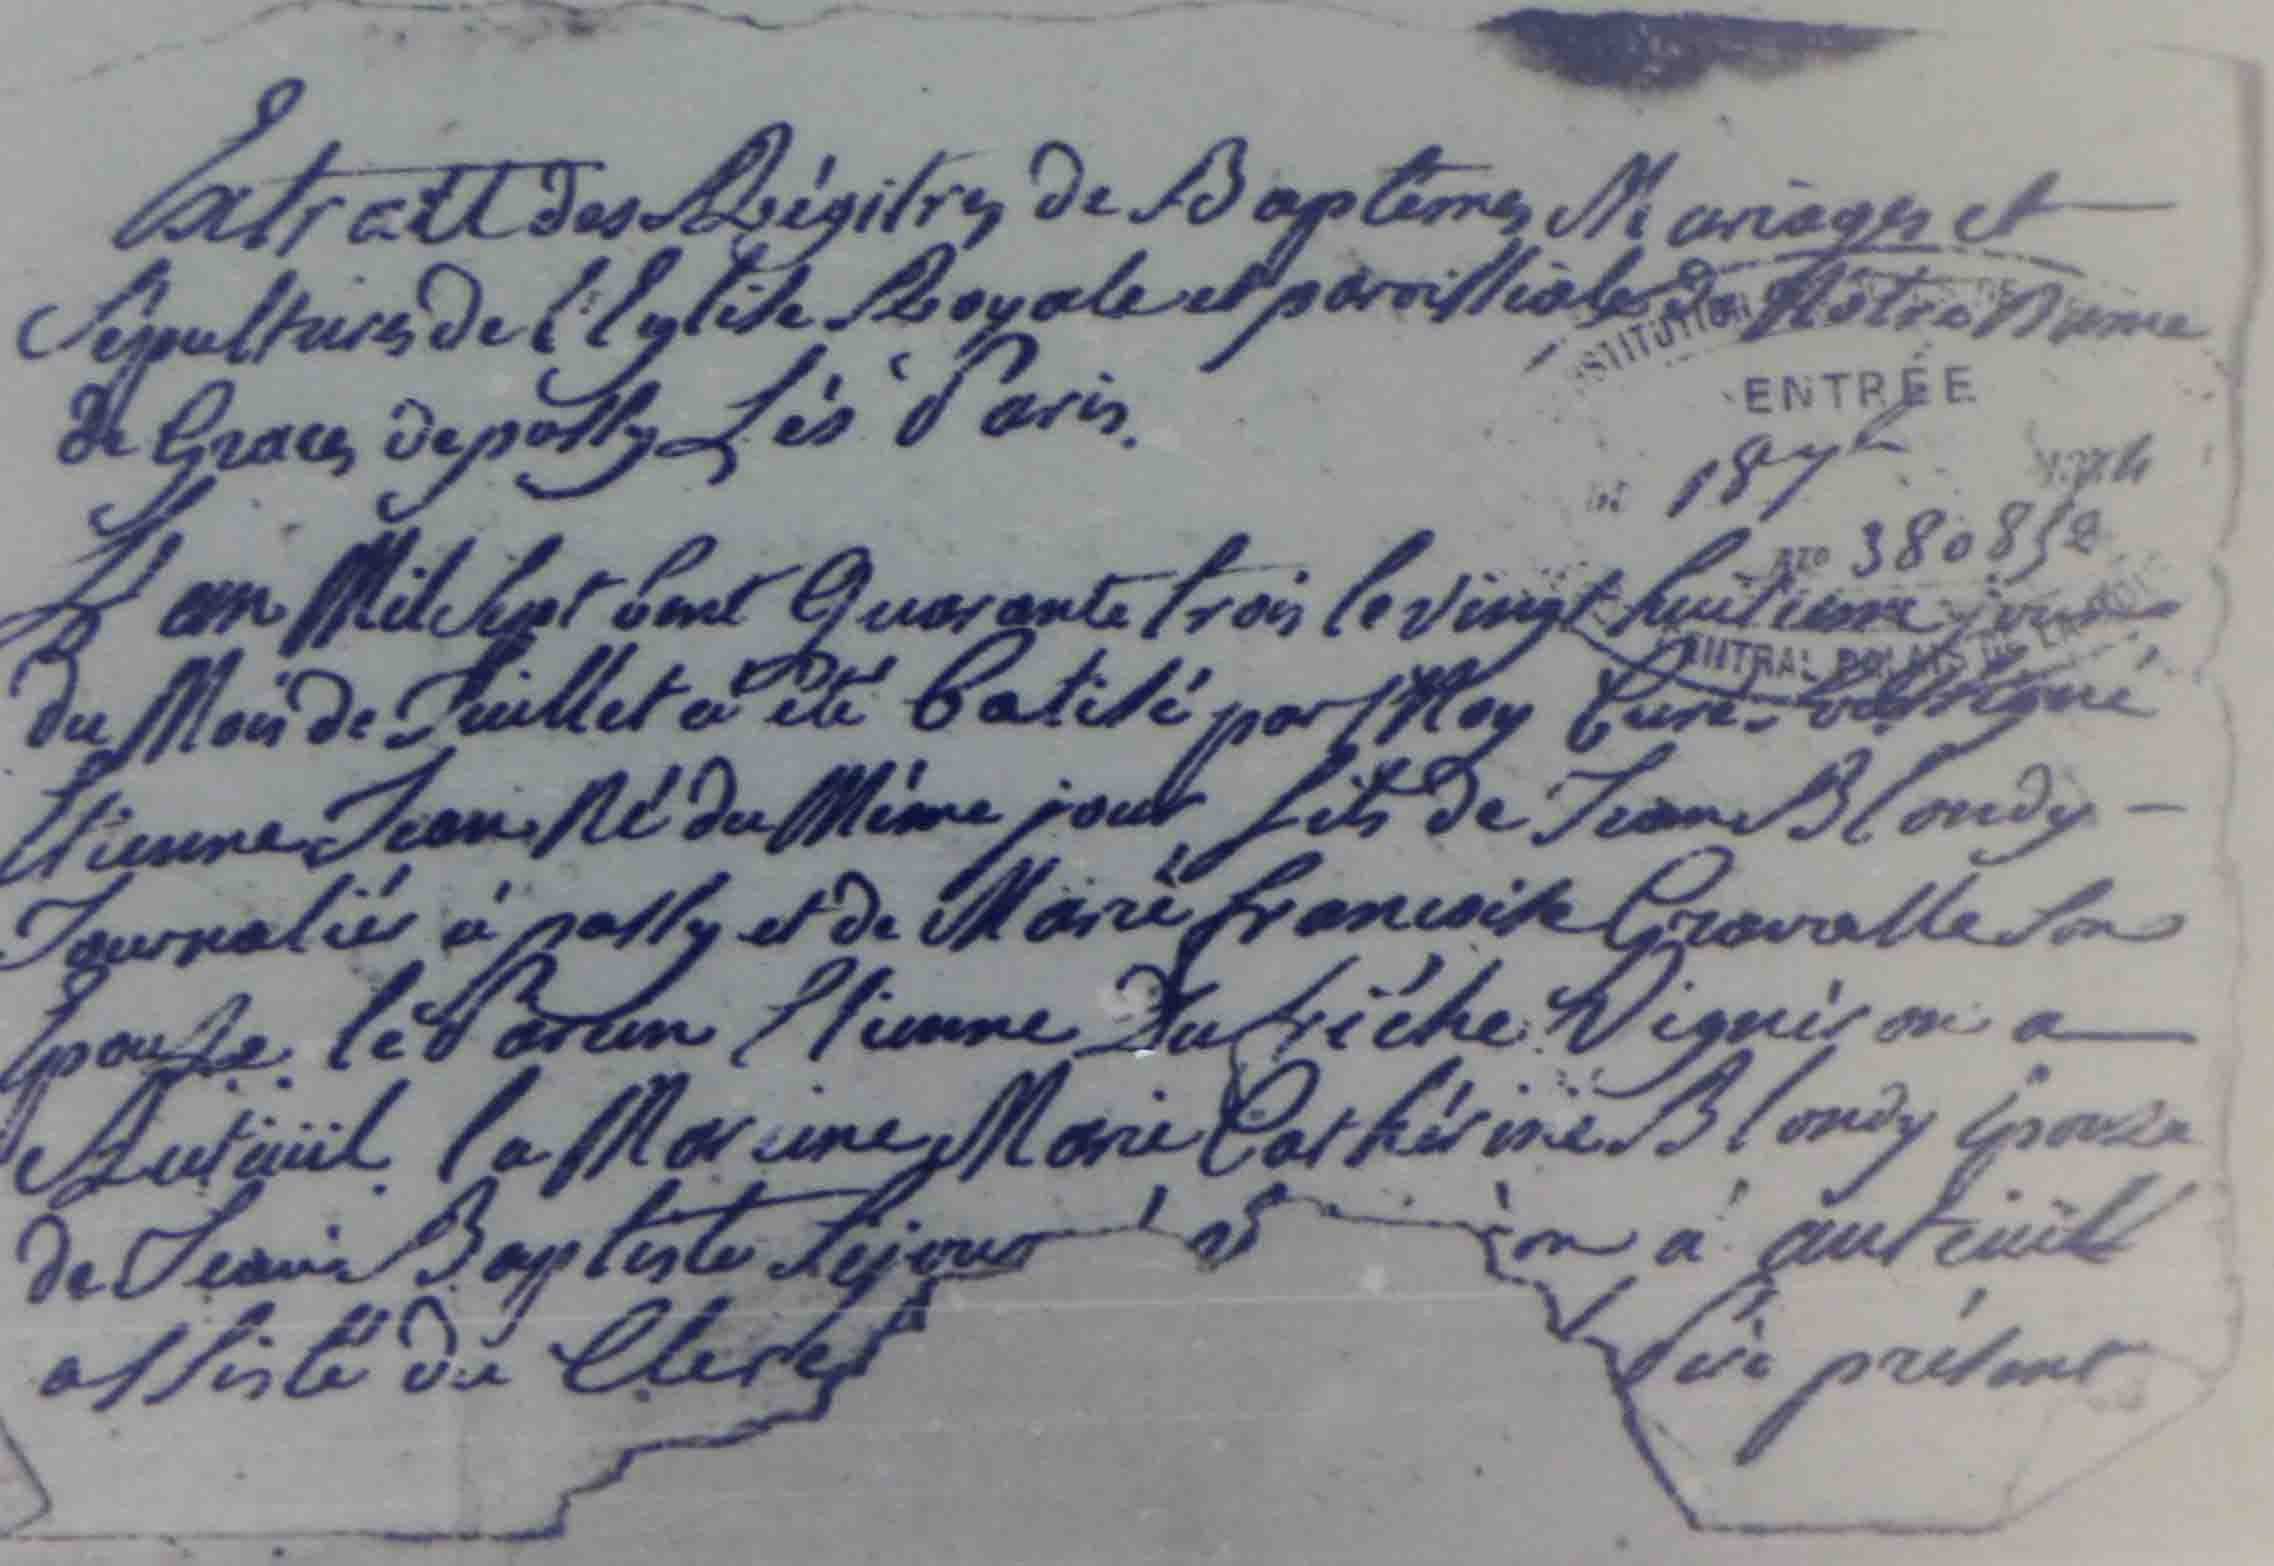 Extrait des Régitres de Baptêmes Mariages et
Sépultures de l'Eglise Royale et paroissiale de Nôtre Dame
de Graces de passy Lés Paris.
ENTRÉE
380852
L'an Mil Sept Cent Quarante trois le vingt huitieme jour
du Mois de Juillet a été Batisé par Moy Curé
Etienne Jean Né du Même jour fils de Jean Blondy
Journaliér à passy et de Marie francoise Gravalle Son
Epouse le Parein Etienne Dufriéche Vigneron a
Auteuil la Mareine Marie Cathérine Blondy épouze
de Jean Baptiste Sejour on à auteuil
assisté du Clerc présent